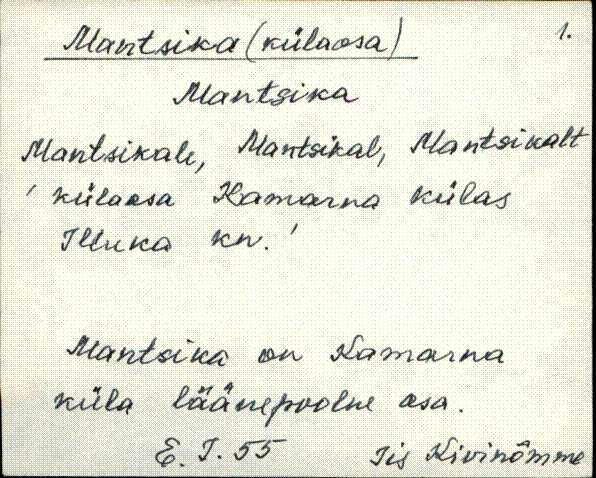 Mantsika (külaosa) 1.
Mantsika
Mantsikale, Mantsikal, Mantsikalt
' külaosa Kamarna külas
Illuka kn.'
Mantsika on Kamarna
küla läänepoolne osa.
E. I. 55 Iis Kivinõmme